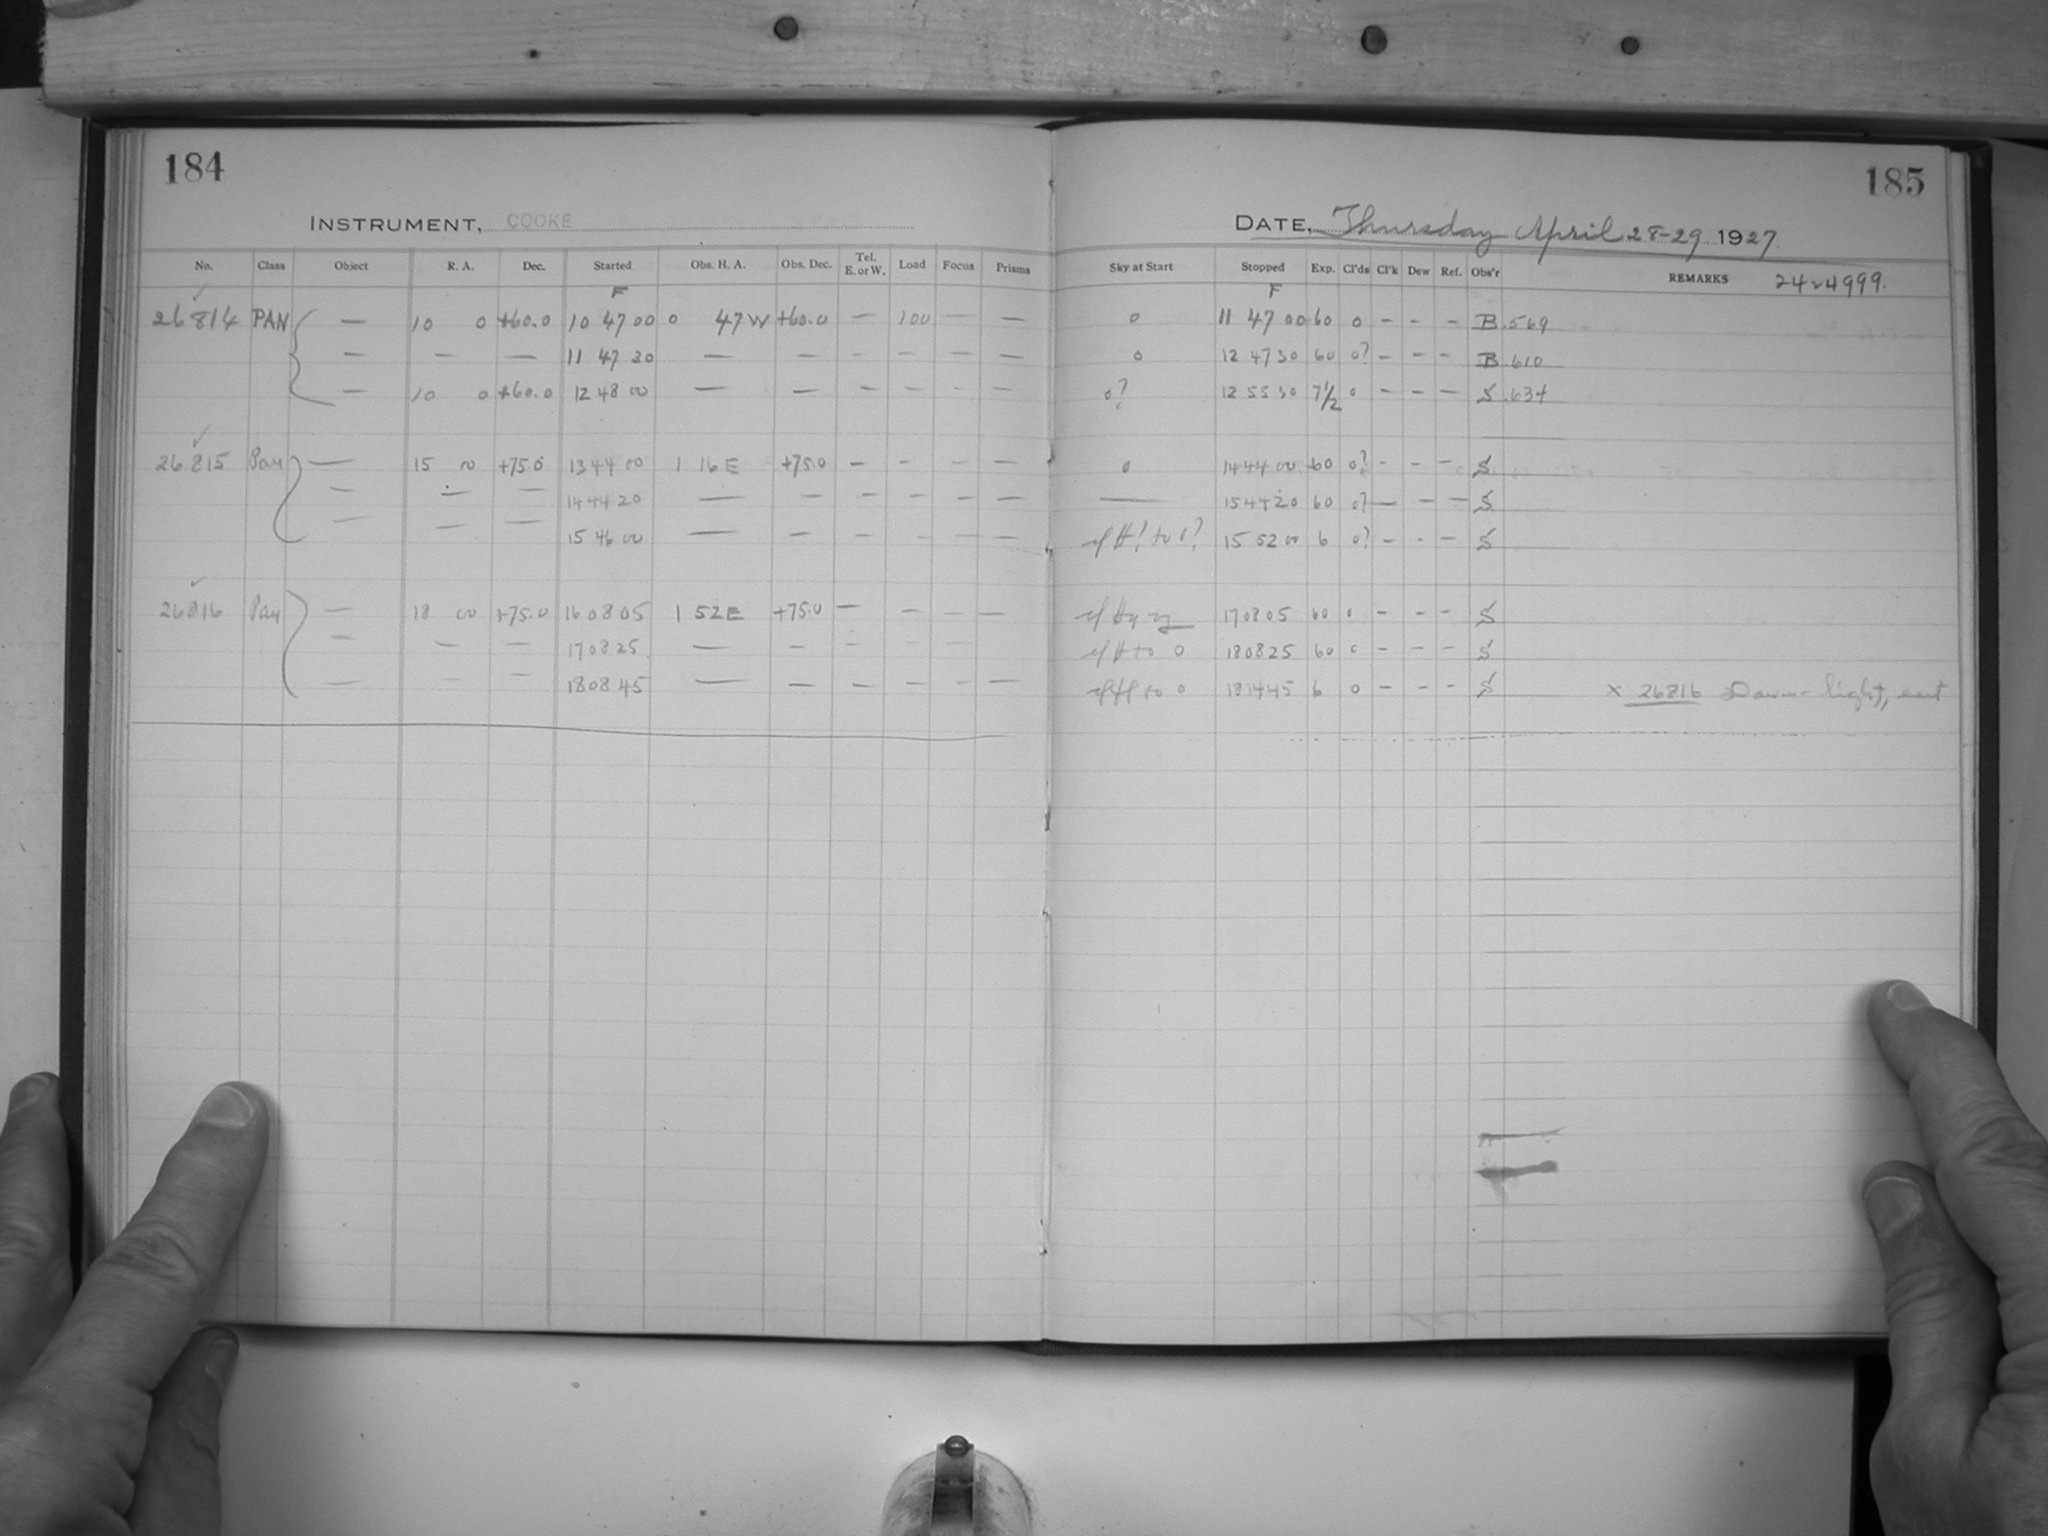 184
INSTRUMENT, COOKE
No. Class Object R. A. Dec. Started Obs. H. A. Obs. Dec. Tel. E. or W. Load Focus Prisms
F
26814 PAN — 10 0 +60.0 10 47 00 0 47 W +60.0 — 100 — —
— — — 11 47 30 — — — — — —
— 10 0 +60.0 12 48 00 — — — — — —
26815 Pan — 15 00 +75.0 13 44 00 1 16 E +75.0 — — — —
— — — 14 44 20 — — — — — —
— — — 15 46 00 — — — — — —
26816 Pan — 18 00 +75.0 16 08 05 1 52 E +75.0 — — — —
— — — 17 08 25 — — — — —
— — — 18 08 45 — — — — — —
185
DATE, Thursday April 28-29 1927
Sky at Start Stopped Exp. Cl'ds Cl'k Dew Ref. Obs'r REMARKS 24 4999.
F
0 11 47 00 60 0 - - - B .569
0 12 47 30 60 0? - - - B .610
0? 12 55 30 7½ 0 - - - S .634
0 14 44 00 60 0? - - - S
— 15 44 20 60 0? — - - S
to 0? 15 52 00 6 0? - - - S
17 08 05 60 0 - - - S
to 0 18 08 25 60 0 - - - S
to 0 18 14 45 6 0 - - - S x 26816 Dawn light, east